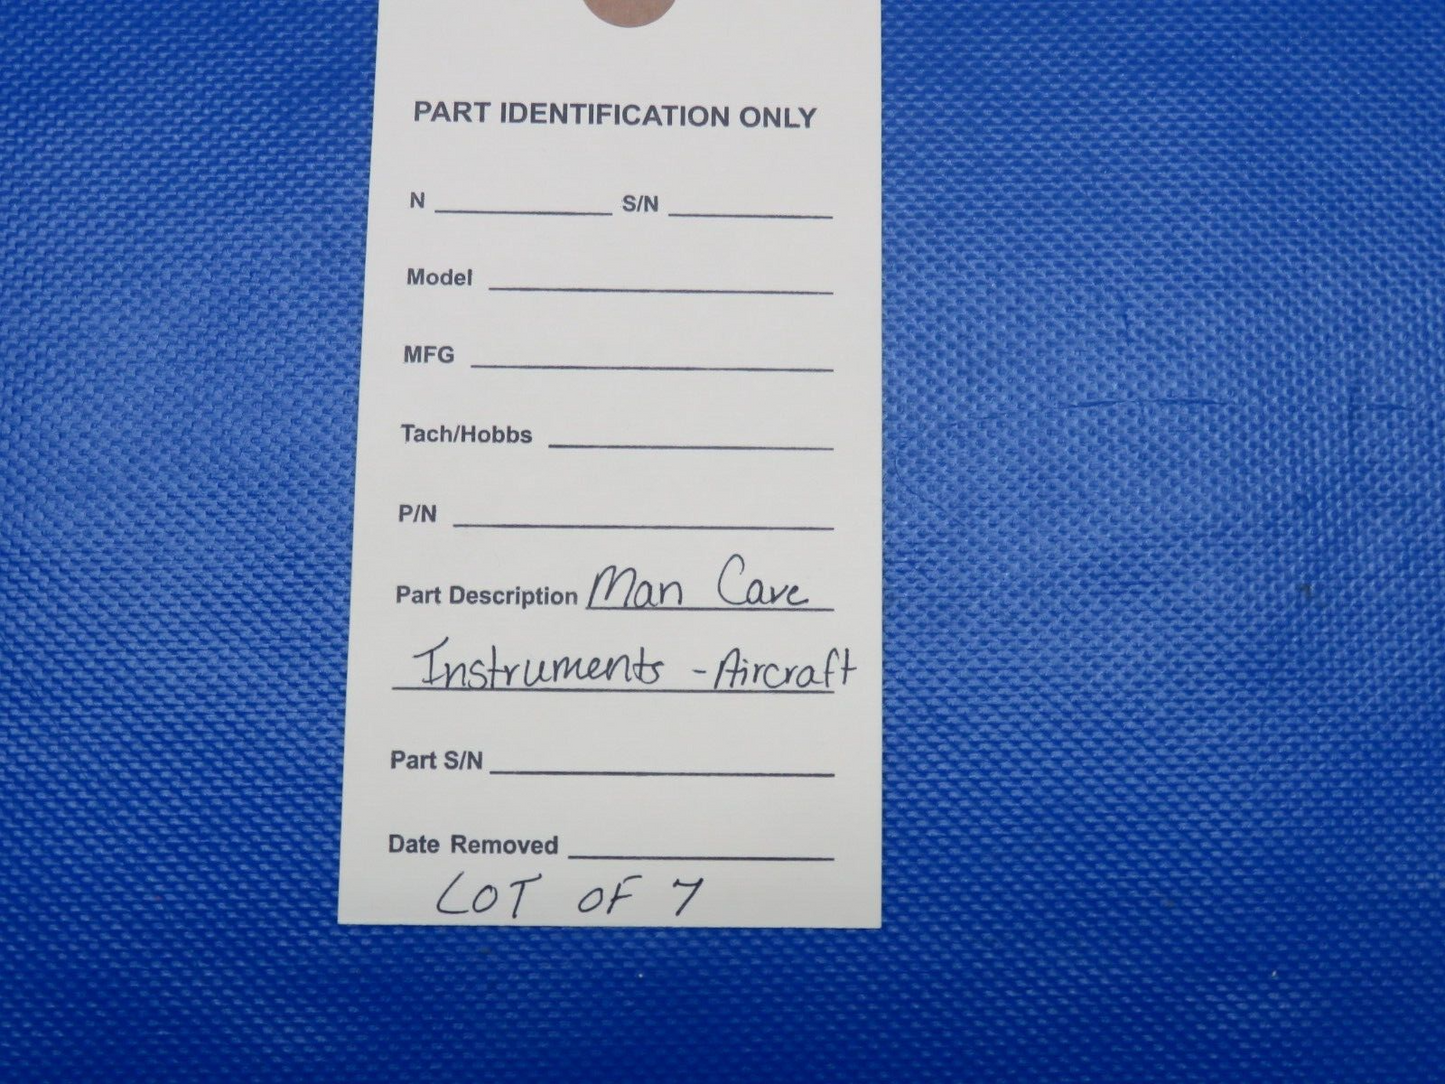 PART IDENTIFICATION ONLY
N S/N
Model
MFG
Tach/Hobbs
P/N
Part Description Man Cave
Instruments - Aircraft
Part S/N
Date Removed
LOT OF 7